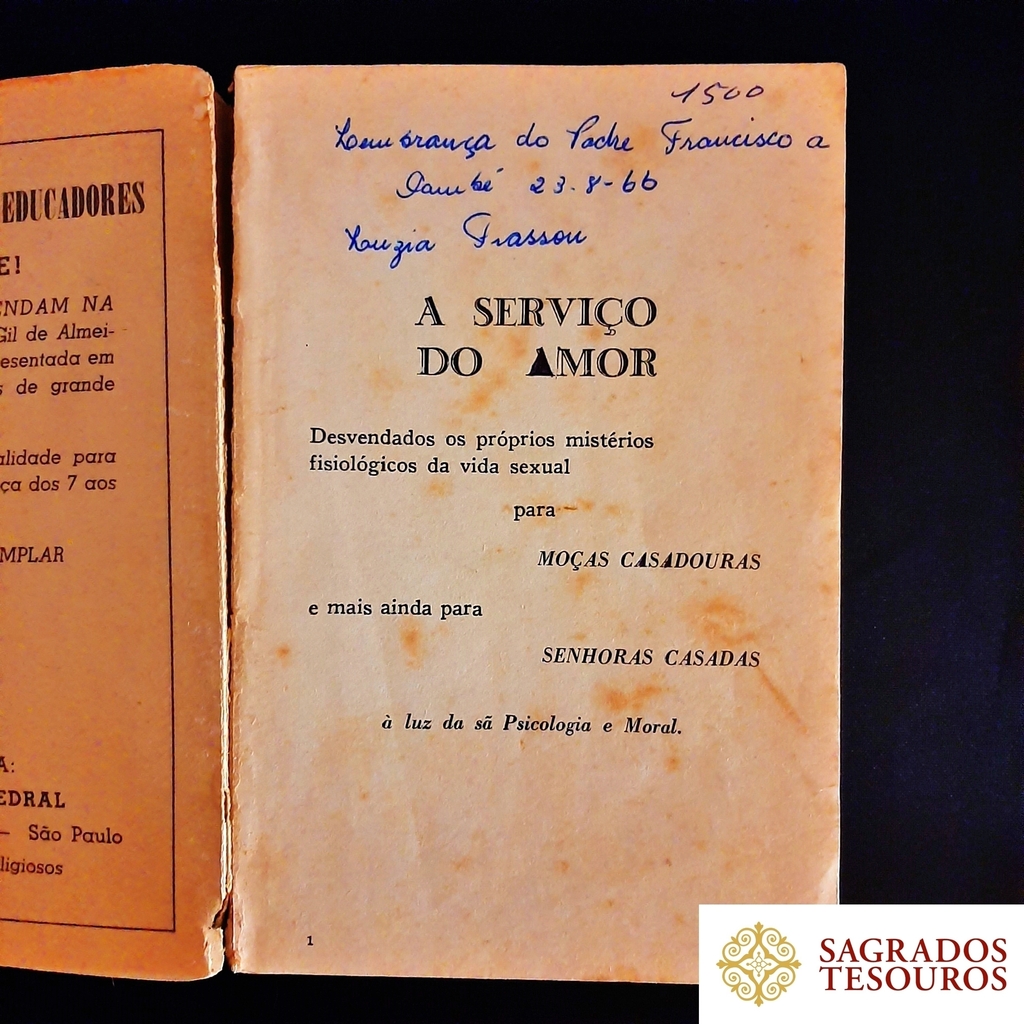 EDUCADORES
E!
ENDAM NA
Gil de Almei-
esentada em
s de grande
alidade para
ça dos 7 aos
MPLAR
A:
EDRAL
— São Paulo
ligiosos
1500
Lembrança do Padre Francisco a
Cambé 23-8-66
Luzia Frasson
A SERVIÇO
DO AMOR
Desvendados os próprios mistérios
fisiológicos da vida sexual
para
MOÇAS CASADOURAS
e mais ainda para
SENHORAS CASADAS
à luz da sã Psicologia e Moral.
1
SAGRADOS
TESOUROS